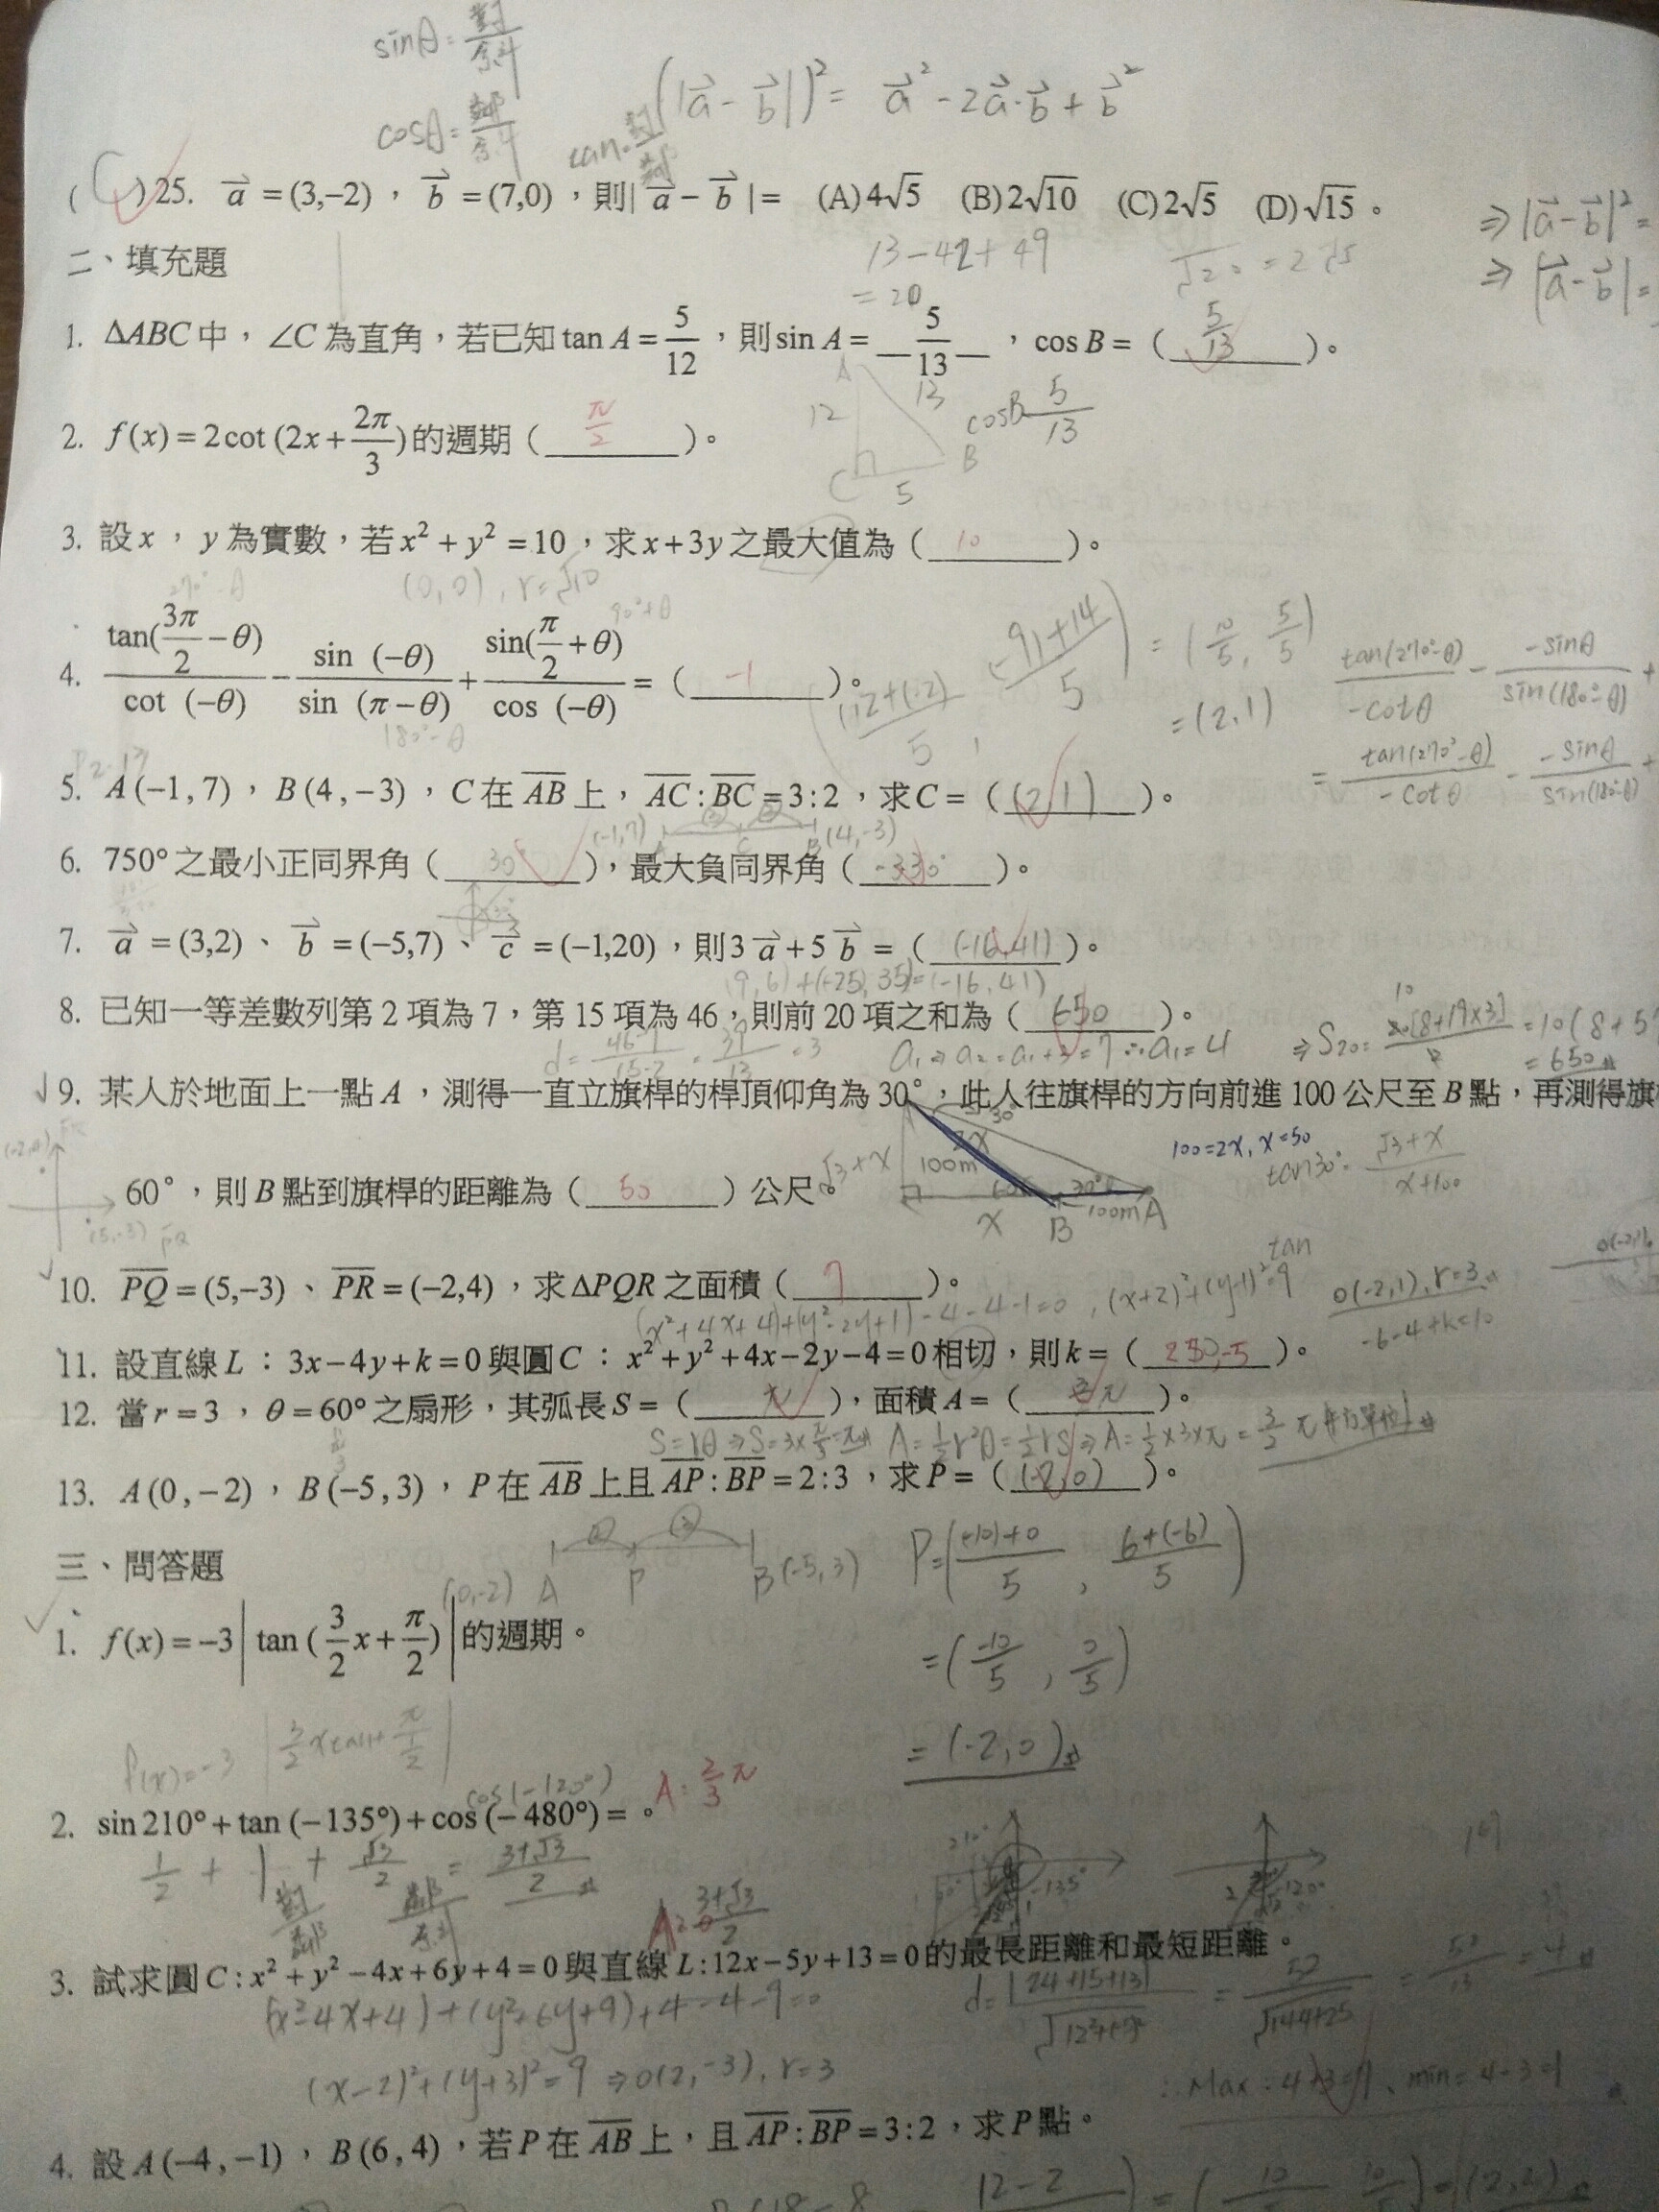 sinθ=對/斜
cosθ=鄰/斜
tan=對/鄰
(|a-b|)²= a²-2a·b+b²
( C ) 25. a=(3,−2),b=(7,0),則|a−b|= (A)4√5 (B)2√10 (C)2√5 (D)√15。
⇒|a-b|²=
⇒|a-b|=
13-42+49
=20
√20=2√5
二、填充題
1. ΔABC中,∠C為直角,若已知tan A=5/12,則sin A=5/13,cos B=(5/13)。
A 12 13 C 5 B
cosB=5/13
2. f(x)=2cot(2x+2π/3)的週期(π/2)。
3. 設x,y為實數,若x²+y²=10,求x+3y之最大值為(10)。
(0,0),r=√10
270°-θ
90°+θ
4. tan(3π/2−θ)/cot(−θ)−sin(−θ)/sin(π−θ)+sin(π/2+θ)/cos(−θ)=(-1)。
180°-θ
=(10/5, 5/5)
=(2,1)
tan(270°-θ)/-cotθ - -sinθ/sin(180°-θ) +
= tan(270°-θ)/-cotθ - -sinθ/sin(180°-θ) +
5. A(−1,7),B(4,−3),C在AB上,AC:BC=3:2,求C=((2,1))。
(-1,7) A C B (4,-3)
6. 750°之最小正同界角(30°),最大負同界角(-330°)。
7. a=(3,2)、b=(−5,7)、c=(−1,20),則3a+5b=((-16,41))。
(9,6)+(-25,35)=(-16,41)
8. 已知一等差數列第2項為7,第15項為46,則前20項之和為(650)。
d=46-7/15-2=39/13=3
a₁⇒a₂=a₁+3=7∴a₁=4
⇒S₂₀=20[8+19×3]/2=10(8+5
=650
√9. 某人於地面上一點A,測得一直立旗桿的桿頂仰角為30°,此人往旗桿的方向前進100公尺至B點,再測得旗
60°,則B點到旗桿的距離為(50)公尺。
√3+x 2x 100m 30° 60° 30° x B 100m A
100=2x, x=50
tan30°=√3+x/x+100
(5,-3) PQ
10. PQ=(5,−3)、PR=(−2,4),求ΔPQR之面積(7)。
tan
(x²+4x+4)+(y²-2y+1)-4-4-1=0,(x+2)²+(y-1)²=9
O(-2,1),r=3
11. 設直線L:3x−4y+k=0與圓C:x²+y²+4x−2y−4=0相切,則k=()。
12. 當r=3,θ=60°之扇形,其弧長S=(π),面積A=(3/2π)。
S=rθ⇒S=3×π/3=π A=½r²θ=½rS⇒A=½×3×π=3/2π(平方單位)
13. A(0,−2),B(−5,3),P在AB上且AP:BP=2:3,求P=((-2,0))。
(0,-2) A ② P ③ B(-5,3)
P=((-10)+0/5, 6+(-6)/5)
=(-10/5, 0/5)
=(-2,0)
三、問答題
1. f(x)=−3|tan(3/2x+π/2)|的週期。
f(x)=-3|3/2xtan+π/2|
A:2/3π
cos(-120°)
2. sin210°+tan(−135°)+cos(−480°)=。
1/2+1+√3/2=3+√3/2
對/鄰 鄰/斜
3. 試求圓C:x²+y²−4x+6y+4=0與直線L:12x−5y+13=0的最長距離和最短距離。
(x²-4x+4)+(y²+6y+9)+4-4-9=0
d=|24+15+13|/√12²+5²=52/√144+25=52/13=4
(x-2)²+(y+3)²=9⇒O(2,-3),r=3
∴Max:4+3=7、min=4-3=1
4. 設A(−4,−1),B(6,4),若P在AB上,且AP:BP=3:2,求P點。